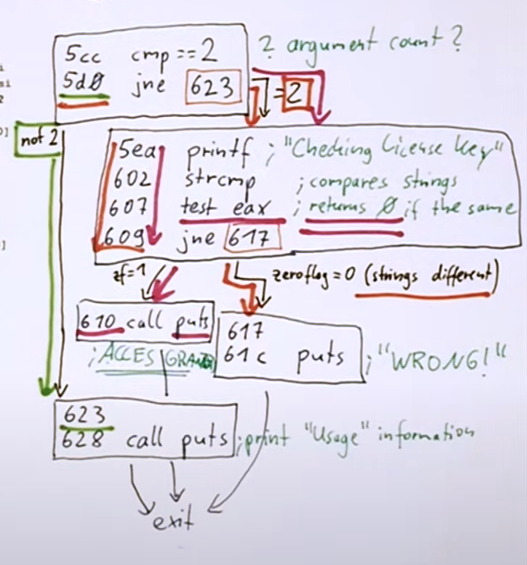 5cc cmp == 2 ? argument count ?
5d0 jne 623 =2
not 2
5ea printf ; "Checking License Key"
602 strcmp ; compares strings
607 test eax ; returns 0 if the same
609 jne 617
zf=1 zeroflag = 0 (strings different)
610 call puts
617
;ACCES GRANTED
61c puts ; "WRONG!"
623
628 call puts ;print "Usage" information
exit